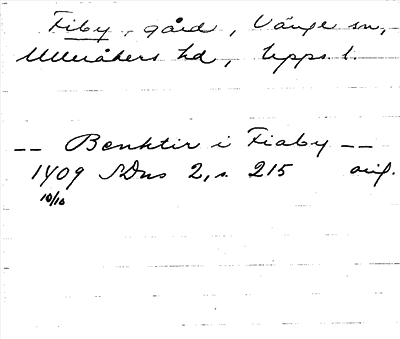 Fiby, gård, Vänge sn,
Ulleråkers hd, Upps. l.
-- Benktir i Fiaby --
1409 SDns 2, s. 215 orig.
10/10